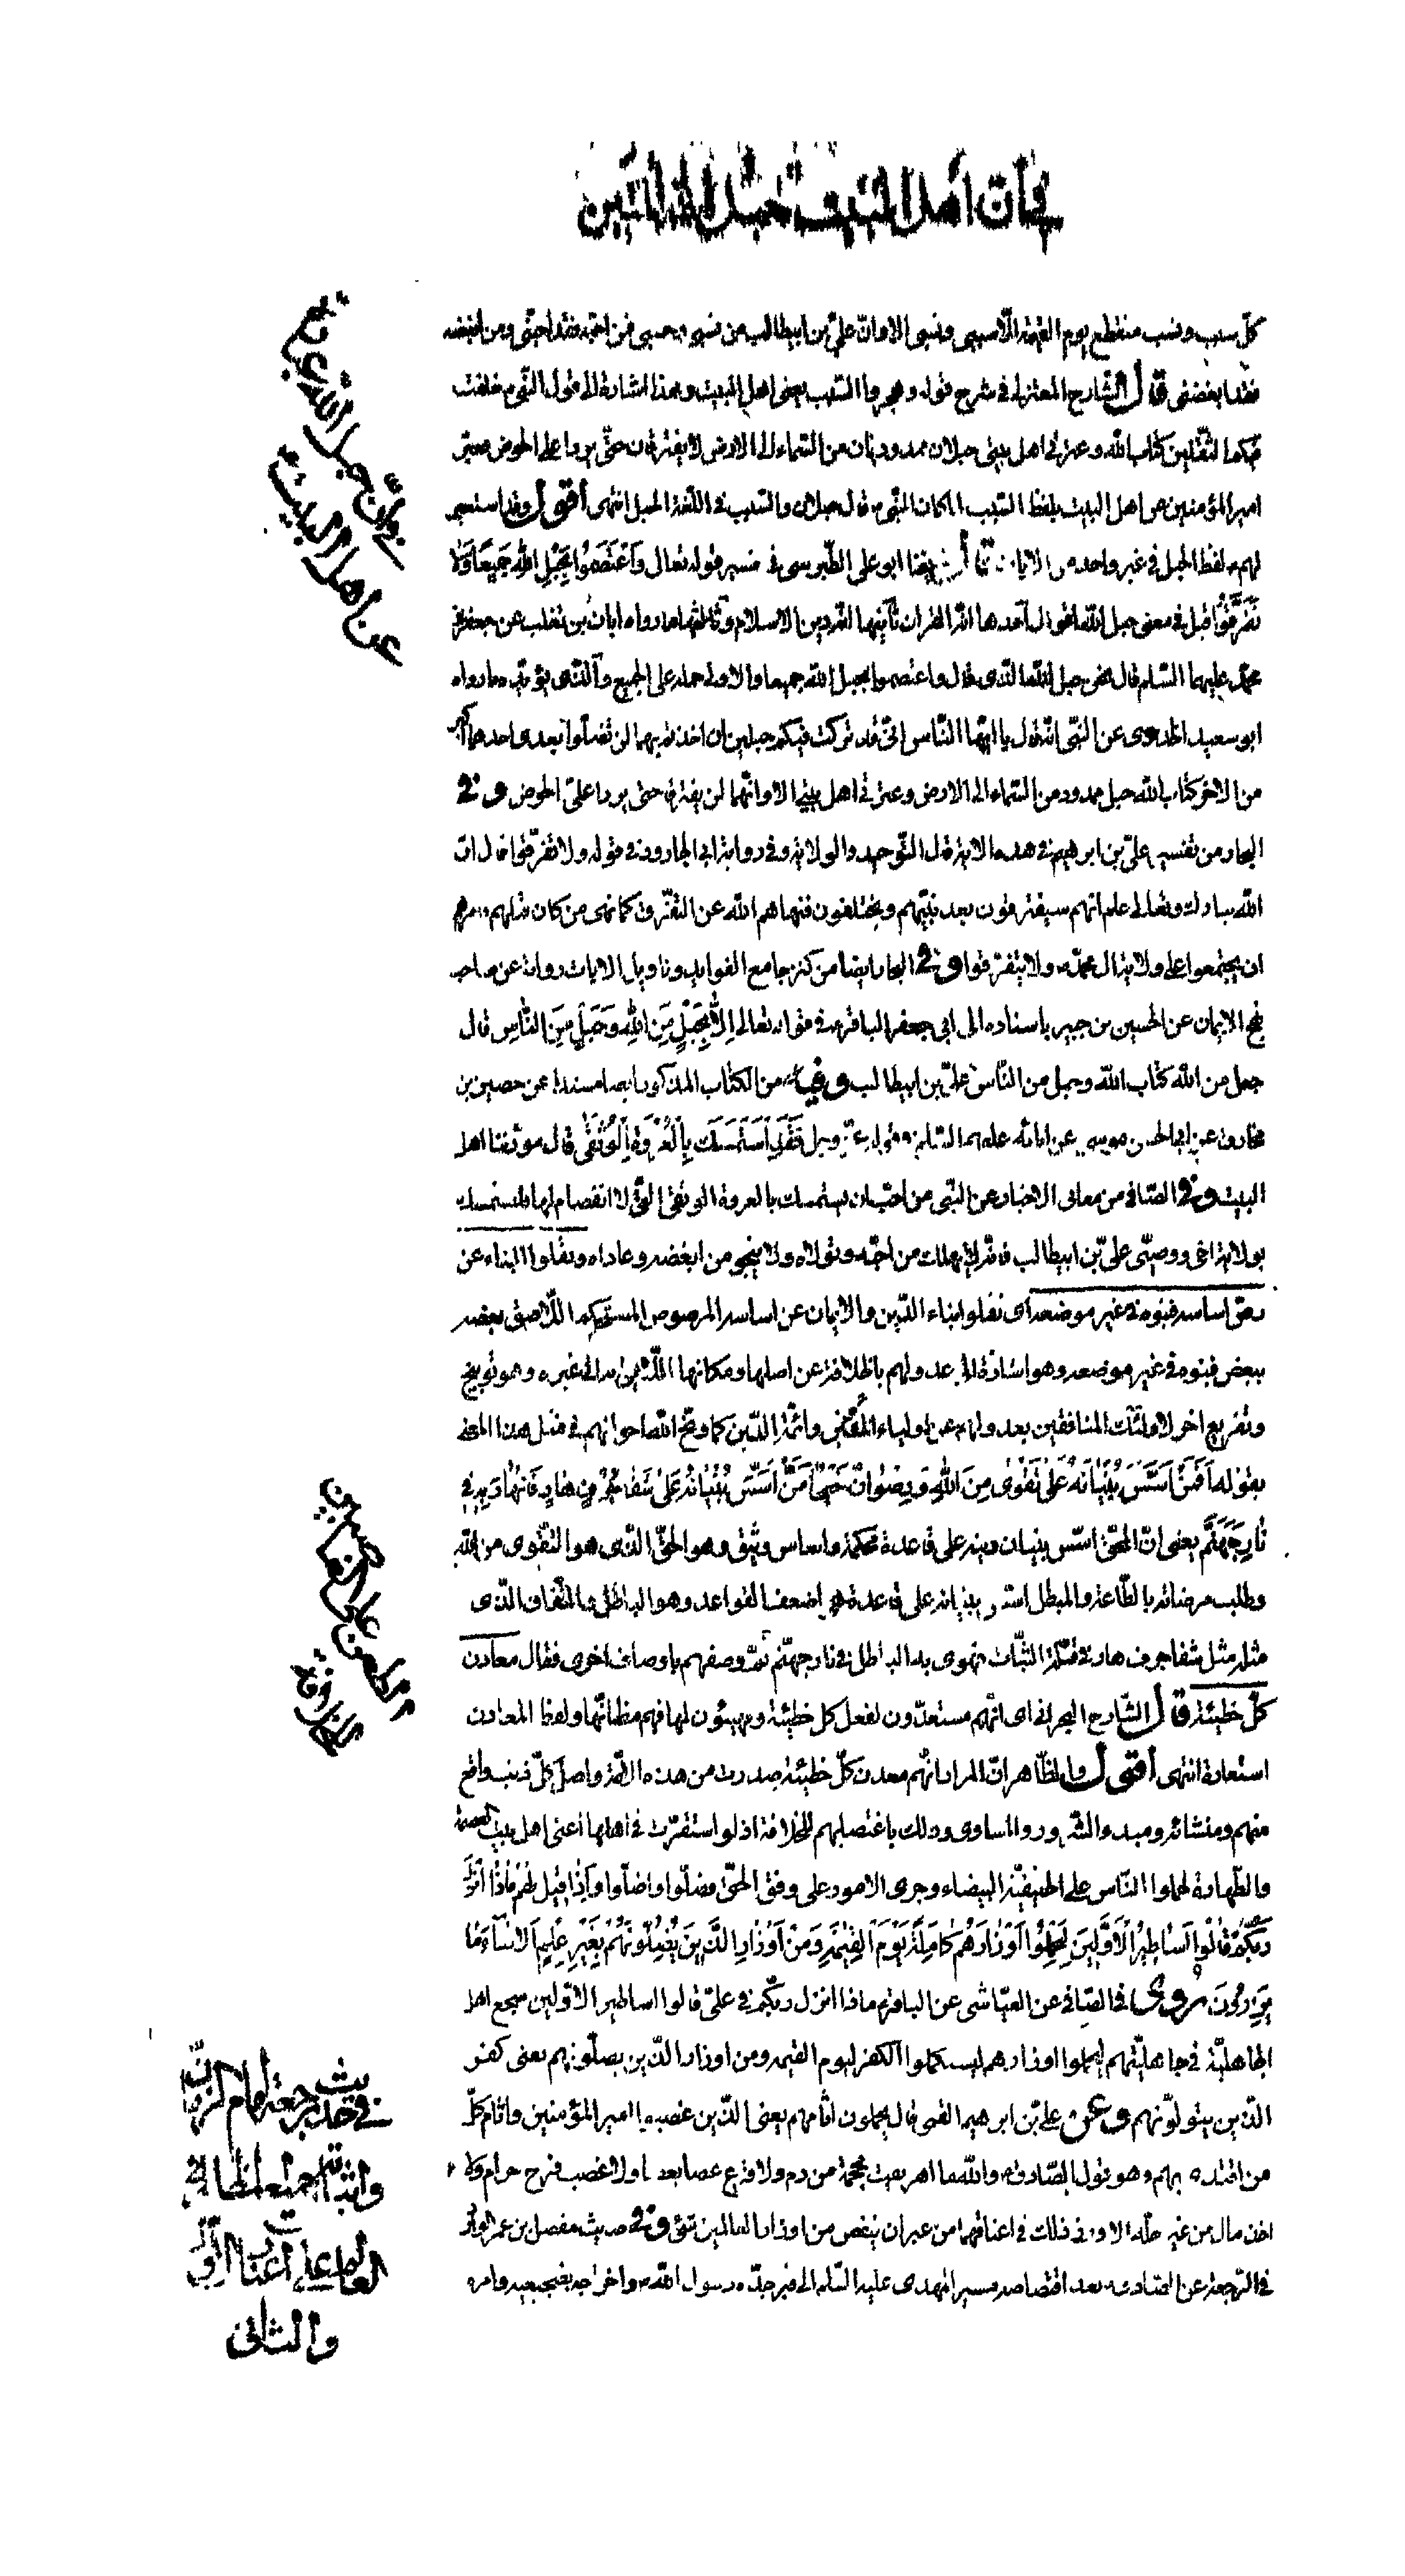 في أن أهل البيت حبل الله المتين
كلّ سبب ونسب منقطع يوم القيمة الّا سببي ونسبي الا وانّ عليّ بن ابيطالب من نسبي وحسبي فمن احبّه فقد احبّني ومن ابغضه
فقد ابغضني قال الشّارح المعتزلي في شرح قوله وهجروا السّبب يعني اهل البيت وهذا اشارة الى قول النّبي خلّفت
فيكم الثّقلين كتاب الله وعترتي اهل بيتي حبلان ممدودان من السّماء الى الارض لا يفترقان حتّى يردا علي الحوض فعبّر
امير المؤمنين عن اهل البيت بلفظ السّبب لمّا كان النّبي قال حبلان والسّبب في اللّغة الحبل انتهى أقول وقد استعير
لهم لفظ الحبل في غير واحد من الآيات قال شيخنا ابو علي الطّبرسي في تفسير قوله تعالى وَاعْتَصِمُوا بِحَبْلِ اللهِ جَمِيعًا وَلا
تَفَرَّقُوا قيل في معنى حبل الله اقوال أحدها انّه القرآن ثانيها انّه دين الاسلام وثالثها ما رواه ابان بن تغلب عن جعفر بن
محمّد عليهما السّلم قال نحن حبل الله الّذي قال واعتصموا بحبل الله جميعا والاولى حمله على الجميع والّذي يؤيّده ما رواه
ابو سعيد الخدري عن النّبي انّه قال يا ايّها النّاس انّي قد تركت فيكم حبلين ان اخذتم بهما لن تضلّوا بعدي احدهما أكبر
من الاخر كتاب الله حبل ممدود من السّماء الى الارض وعترتي اهل بيتي الا وانّهما لن يفترقا حتى يردا عليّ الحوض وفي
البحار من تفسير عليّ بن ابرهيم في هذه الاية قال التّوحيد والولاية وفي رواية ابي الجارود في قوله ولا تفرّقوا قال انّ
الله تبارك وتعالى علم انّهم سيفترقون بعد نبيّهم ويختلفون فنهاهم الله عن التّفرّق كما نهى من كان قبلهم فامرهم
ان يجتمعوا على ولاية ال محمّد ولا يتفرّقوا وفي البحار ايضا من كنز جامع الفوايد وتاويل الايات رواية عن صاحب
نهج الايمان عن الحسين بن جبير باسناده الى ابي جعفر الباقر في قوله تعالى اِلّا بِحَبْلٍ مِنَ اللهِ وَحَبْلٍ مِنَ النّاسِ قال
حبل من الله كتاب الله وحبل من النّاس عليّ بن ابيطالب وفيه من الكتاب المذكور ايضا مسندا عن حصين بن
مخارق عن ابي الحسن موسى عن ابائه عليهم السّلم في قوله عزّ وجل فَقَدِ اسْتَمْسَكَ بِالْعُرْوَةِ الْوُثْقى قال مودّتنا اهل
البيت وفي الصّافي من معاني الاخبار عن النّبي من احبّ ان يستمسك بالعروة الوثقى الّتي لا انفصام لها فليستمسك
بولاية اخي ووصيّي عليّ بن ابيطالب فانّه لا يهلك من احبّه وتولّاه ولا ينجو من ابغضه وعاداه ونقلوا البناء عن
رصّ اساسه فبنوه في غير موضعه اى نقلوا بناء الدّين والايمان عن اساسه المرصوص المستحكم اللّاصق بعضه
ببعض فبنوه في غير موضعه وهو اشارة الى عدولهم بالخلافة عن اصلها ومكانها اللّايق به الى غيره وهو توبيخ
وتقريع اخر لاولئك المنافقين بعدولهم عن اولياء المؤمنين وائمّة الدّين كما وبّخ الله اخوانهم في مثل هذا المعنى
بقوله اَفَمَنْ اَسَّسَ بُنْيانَهُ عَلى تَقْوى مِنَ اللهِ وَرِضْوانٍ خَيْرٌ اَمْ مَنْ اَسَّسَ بُنْيانَهُ عَلى شَفا جُرُفٍ هارٍ فَانْهارَ بِهِ في
نارِ جَهَنَّمَ يعني انّ المحقّ اسّس بنيان دينه على قاعدة محكمة واساس وثيق وهو الحقّ الّذي هو التّقوى من الله
وطلب مرضاته بالطّاعة والمبطل اسّس بنيانه على قاعدة هي اضعف القواعد وهو الباطل والنّفاق الّذي
مثله مثل شفا جرف هار في قلّة الثّبات فهوى به الباطل في نار جهنّم ثمّ وصفهم باوصاف اخرى فقال معادن
كلّ خطيئة قال الشّارح البحراني اى انّهم مستعدّون لفعل كل خطيئة ومهيئون لها فهم مظانّها ولفظ المعادن
استعارة انتهى أقول والظّاهر انّ المراد انّهم معدن كلّ خطيئة صدرت من هذه الامّة واصل كلّ ذنب واقع
منهم ومنشائه ومبدء الشّرور والمساوى وذلك باغتصابهم للخلافة اذ لو استقرّت في اهلها اعني اهل بيت العصمة
والطّهارة لحملوا النّاس على الحنيفيّة البيضاء وجرى الامور على وفق الحقّ فضلّوا واضلّوا وَاِذا قيلَ لَهُمْ ماذا اَنْزَلَ
رَبُّكُمْ قالُوا اَساطيرُ الْاَوَّلينَ لِيَحْمِلُوا اَوْزارَهُمْ كامِلَةً يَوْمَ الْقِيمَةِ وَمِنْ اَوْزارِ الَّذينَ يُضِلُّونَهُمْ بِغَيْرِ عِلْمٍ اَلا ساءَ ما
يَزِرُونَ روى في الصّافي عن العيّاشي عن الباقر ماذا انزل ربّكم في عليّ قالوا اساطير الاوّلين سجع اهل
الجاهليّة في جاهليّتهم ليحملوا اوزارهم ليستكملوا الكفر ليوم القيمة ومن اوزار الّذين يضلّونهم يعني كفر
الّذين يتولّونهم وعن عليّ بن ابرهيم القمي قال يحملون اثامهم يعني الّذين غصبوا امير المؤمنين واثام كلّ
من اقتدى بهم وهو قول الصّادق والله ما اهريقت محجمة من دم ولا قرع عصا بعصا ولا غصب فرج حرام ولا
اخذ مال من غير حلّه الا ووزر ذلك في اعناقهما من غير ان ينقص من اوزار العالمين شيء وفي حديث مفضل بن عمر
في الرّجعة عن الصّادق بعد اقتصاصه مسير المهدي عليه السّلم الى قبر جدّه رسول الله واخراجه وامره
في أن حبل الله عبارة
عن أهل البيت
في حديث رجعة إمام الزمان
وإثباته جميع المظالم
على أعناق الأول
والثاني